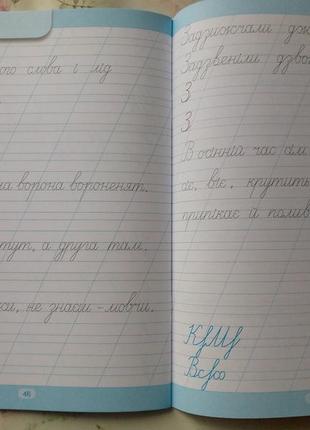 ого слова і лід
на ворона вороненят.
тут, а друга там.
си, не знаєш – мовчи.
46
Задзижчали дж
Задзвеніли дзво
З
З
В осінній час сім
сіє, віє, крутить
припікає й полив